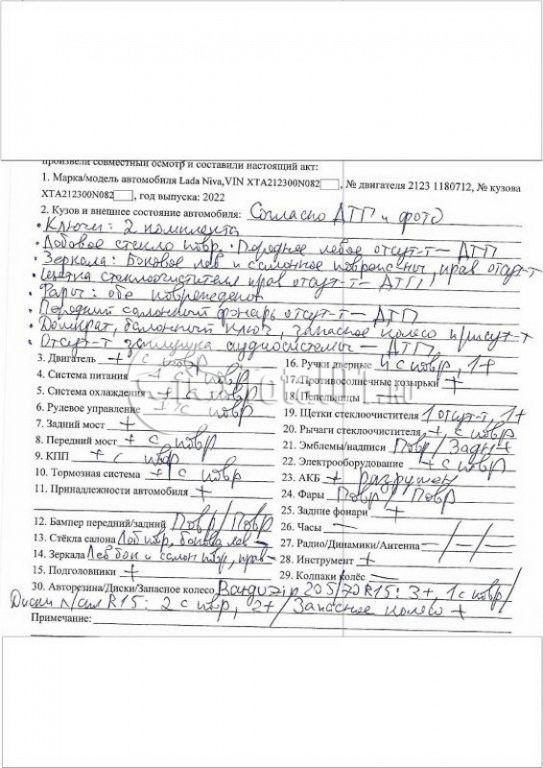 произвели совместный осмотр и составили настоящий акт:
1. Марка/модель автомобиля Lada Niva,VIN XTA212300N082, № двигателя 2123 1180712, № кузова
XTA212300N082, год выпуска: 2022
2. Кузов и внешнее состояние автомобиля: Согласно ДТП и фото
• Ключи: 2 комплекта
• Лобовое стекло повр. • Переднее левое отсут-т – ДТП
• Зеркала: Боковое лев и салонное повреждены, прав отсут-т
• Щетка стеклоочистителя прав отсут-т – ДТП
• Фары: обе повреждены
• Передний салонный фонарь отсут-т – ДТП
• Домкрат, балонный ключ, запасное колесо присут-т
• Отсут-т заглушка аудиосистемы – ДТП
3. Двигатель + с повр
4. Система питания + с повр
5. Система охлаждения + с повр
6. Рулевое управление + с повр
7. Задний мост +
8. Передний мост + с повр
9. КПП + с повр
10. Тормозная система + с повр
11. Принадлежности автомобиля +
12. Бампер передний/задний Повр / Повр
13. Стёкла салона Лоб повр, боковое лев –
14. Зеркала Лев бок и салон повр, прав –
15. Подголовники +
16. Ручки дверные с повр, 1+
17. Противосолнечные козырьки +
18. Пепельницы –
19. Щетки стеклоочистителя 1 отсут-т, 1+
20. Рычаги стеклоочистителя + с повр
21. Эмблемы/надписи Повр / Задн +
22. Электрооборудование + с повр
23. АКБ + разрушен
24. Фары Повр / Повр
25. Задние фонари +
26. Часы –
27. Радио/Динамики/Антенна – / – / –
28. Инструмент +
29. Колпаки колёс –
30. Авторезина/Диски/Запасное колесо 205/70 R15: 3+, 1 с повр /
Диски R15: 2 с повр, 2+ / Запасное колесо +
Примечание: